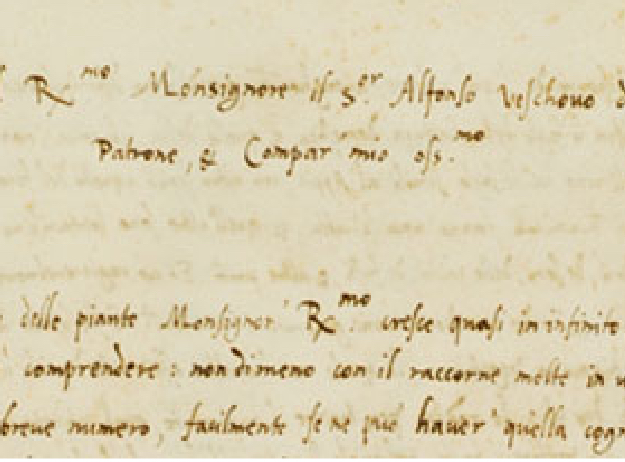 Rmo Monsignore il sor Alfonso Veschovo d
Patrone, & Compar mio oss.mo
delle piante Monsignor' Rmo. cresce quasi in infinite
comprendere: non dimeno con il raccorne molte in u
breue numero, facilmente se ne può hauer' quella cogn